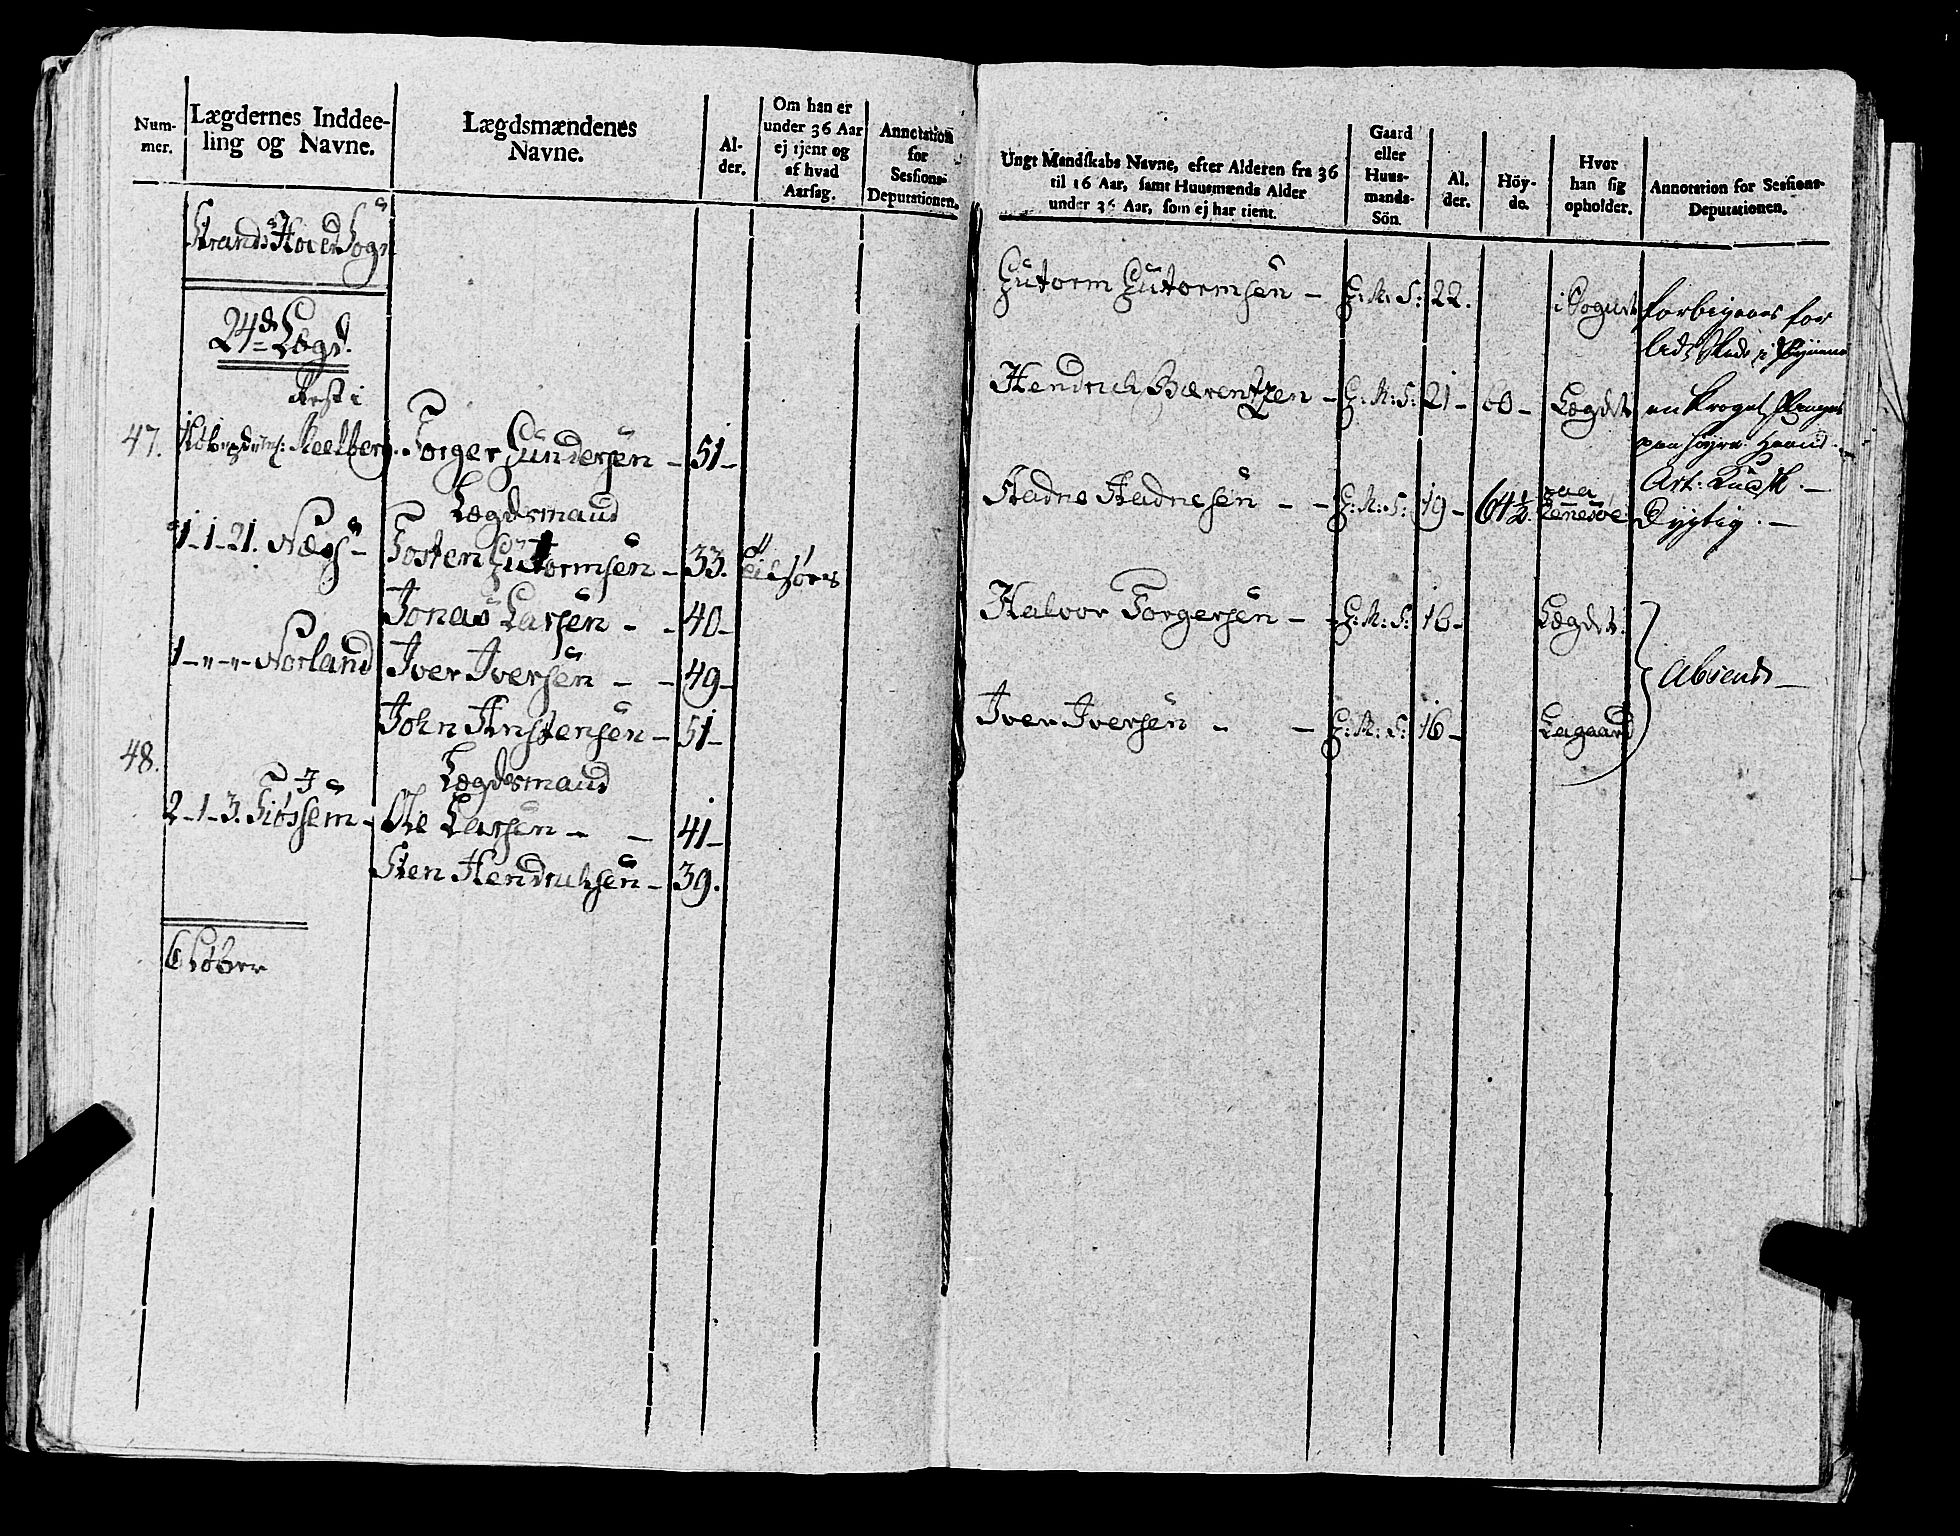 Num-
mer.
Lægdernes Inddee-
ling og Navne.
Lægdsmændenes
Navne.
Al-
der.
Om han er
under 36 Aar
ej tjent og
af hvad
Aarsag.
Annotation
for
Sessions-
Deputationen.
Strands Sogn
24de Lægd.
Rest i
47. Meelberg. Torger Gundersen - 51-
Lægdsmand
1-1-21. Næs - Tosten Gutormsen - 33.
Jonas Larsen - - 40-
1-"-"- Norland Iver Iversen - - 49-
John Knstensen - 51-
48.
Lægdsmand
2-1-3. Tiøssem - Ole Larsen - - 41-
Sten Hendrichsen - 39.
Ungt Mandskabs Navne, efter Alderen fra 36
til 16 Aar, samt Huusmænds Alder
under 36 Aar, som ej har tient.
Gaard
eller
Huus-
mands-
Sön.
Al.
der.
Höy-
de.
Hvor
han sig
opholder.
Annotation for Sessions-
Deputationen.
Gutorm Gutormsen - G: M: S: 22. i Sognet forbigaaes for
Hendrich Bærentzen - G: M: S: 21- 60- Lægdet en kroget Finger
paa høyre Haand.
Art: Kudsk. -
Hadne Hadnesen - - G: M: S: 19- 64½. paa Dygtig. -
Halvor Torgersen - - G: M: S: 16- Lægdet.
Absent -
Iver Iversen - - G: M: S: 16- Lagaard